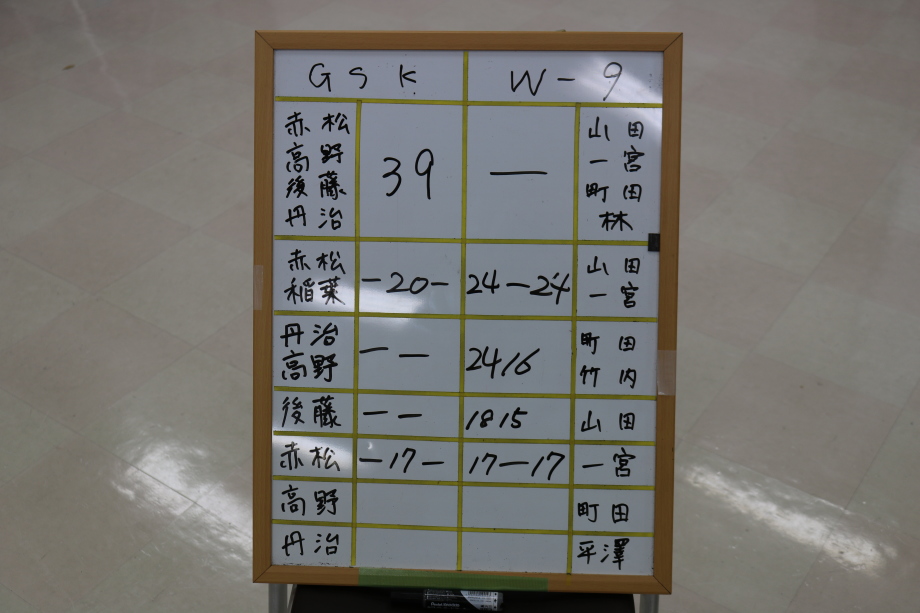 G S K W - 9
赤 松 山 田
高 野 39 — 一 宮
後 藤 町 田
丹 治 林
赤 松 -20- 24-24 山 田
稲葉 一 宮
丹 治 - - 2416 町 田
高野 竹 内
後 藤 - - 1815 山 田
赤松 -17- 17-17 一 宮
高 野 町 田
丹 治 平澤